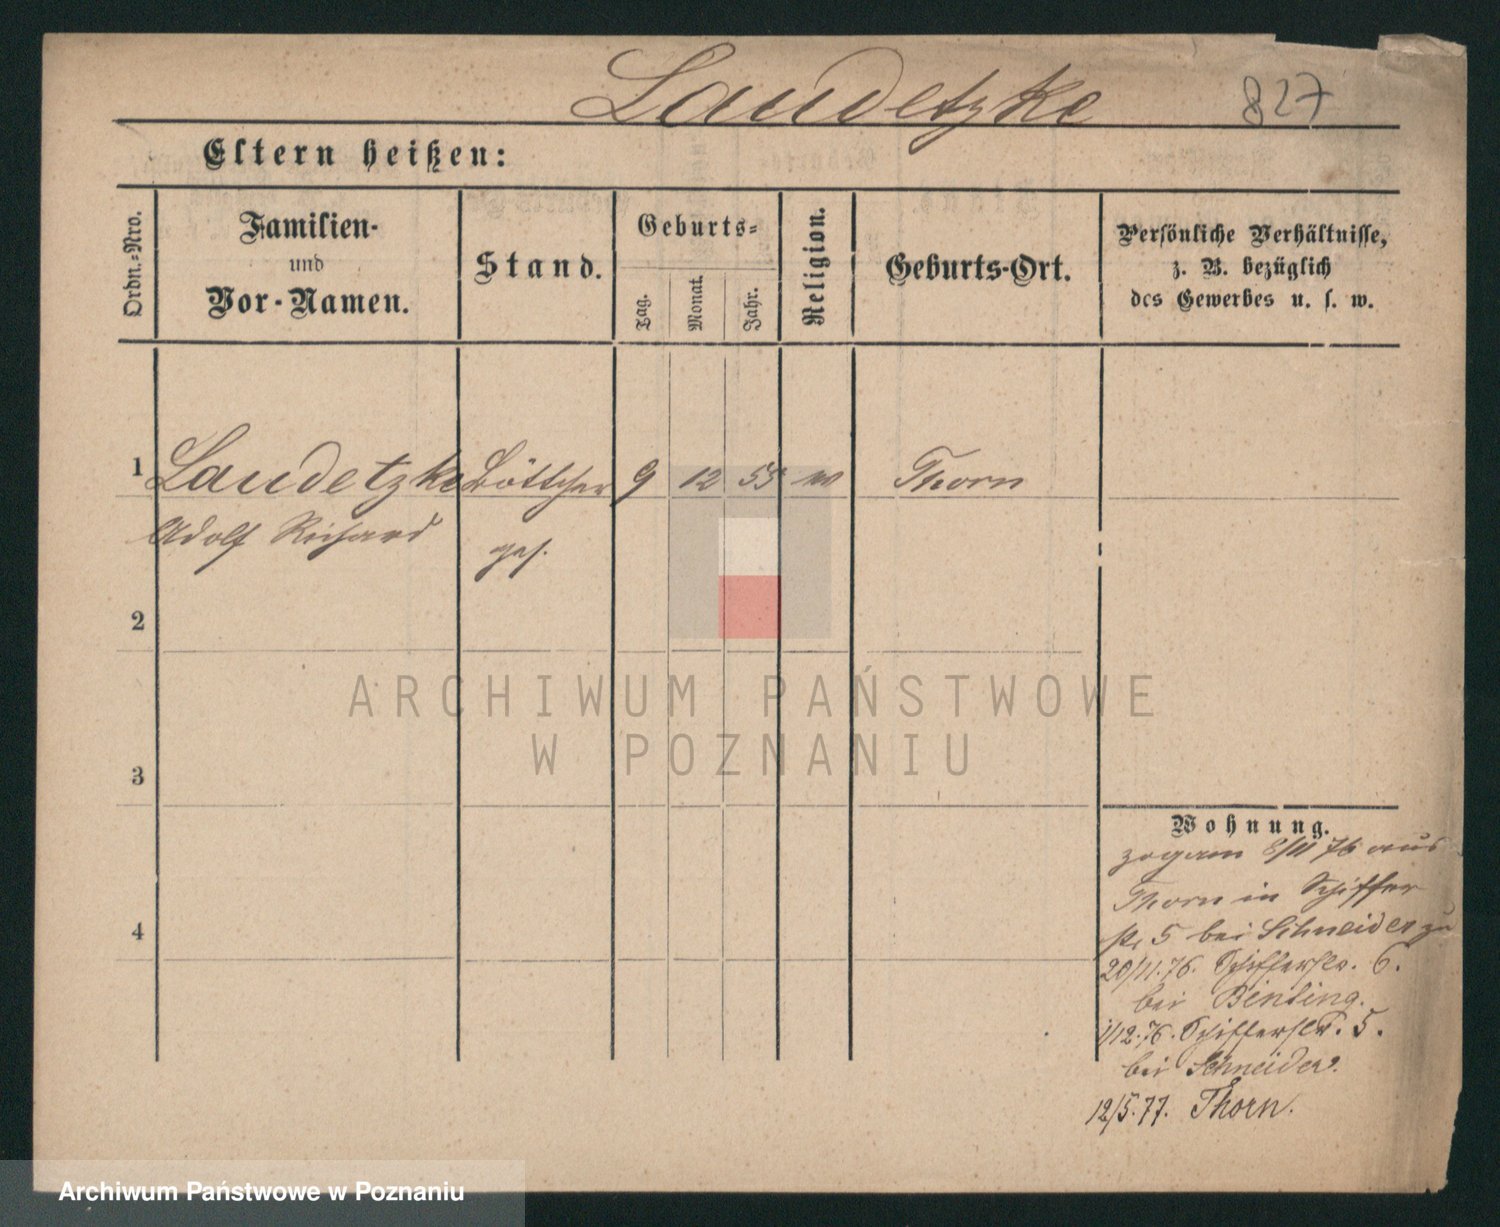 Laudetzke 827
Eltern heißen:
Ordn.-Nro.
Familien-
und
Vor-Namen.
Stand.
Geburts-
Tag.
Monat.
Jahr.
Religion.
Geburts-Ort.
Persönliche Verhältnisse,
z. B. bezüglich
des Gewerbes u. s. w.
1 Laudetzke Böttcher 9 12 55 Thorn
Adolf Richard ges.
2
3
4
Wohnung.
zog am 8/11 76 aus
Thorn in Schiffer
str 5 bei Schneider zu
20/11.76. Schifferstr. 6.
bei Binting.
1/12.76. Schifferstr. 5.
bei Schneider.
12/5.77. Thorn.
ARCHIWUM PAŃSTWOWE
W POZNANIU
Archiwum Państwowe w Poznaniu